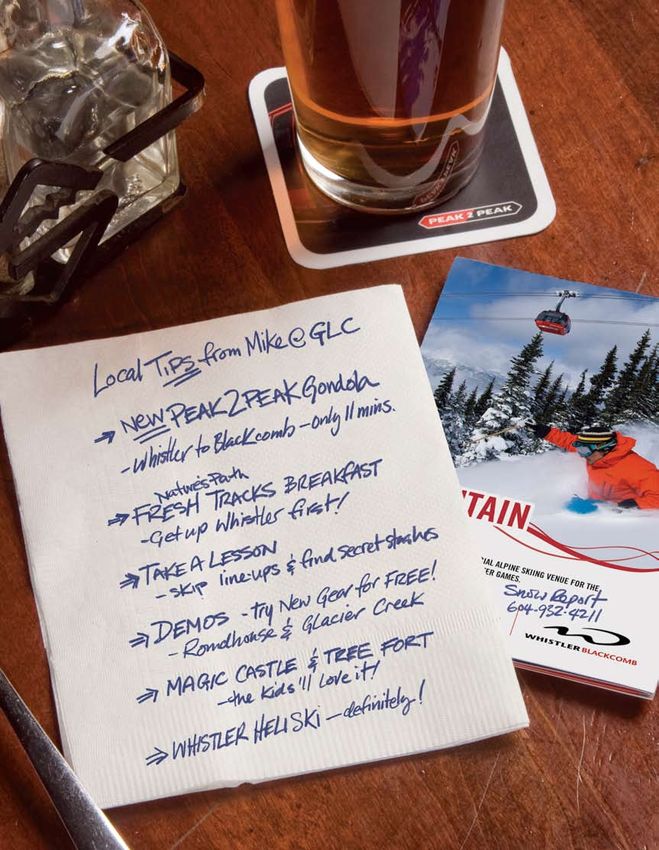 PEAK 2 PEAK
Local Tips from Mike @ GLC
⇒ NEW PEAK 2 PEAK Gondola
- Whistler to Blackcomb - only 11 mins.
Nature's Path
⇒ FRESH TRACKS BREAKFAST
- Get up Whistler first!
⇒ TAKE A LESSON
- skip line-ups & find secret stashes
⇒ DEMOS - try New Gear for FREE!
- Roundhouse & Glacier Creek
⇒ MAGIC CASTLE & TREE FORT
- the kids'll love it!
⇒ WHISTLER HELISKI - definitely!
TAIN
IAL ALPINE SKIING VENUE FOR THE
ER GAMES.
Snow Report
604-932-4211
WHISTLERBLACKCOMB